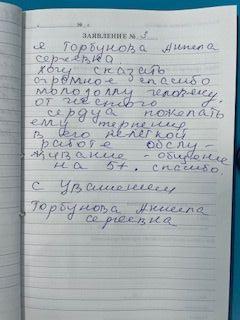 ЗАЯВЛЕНИЕ № 3
я Горбунова Анжела
сергеевна
хочу сказать
огромное спасибо
молодому человеку.
от чистого
сердца пожелать
ему терпения
в его нелёгкой
работе обслу-
живание - общение
на 5+. спасибо
с уважением
Горбунова Анжела
сергеевна